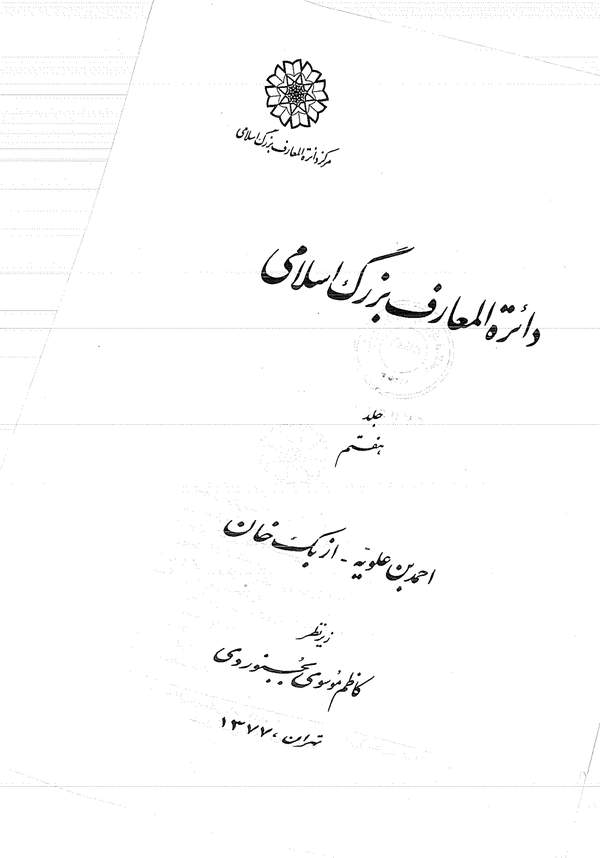 مرکز دائرة المعارف بزرگ اسلامی
دائرة المعارف بزرگ اسلامی
جلد
هفتم
احمد بن علویّه - ازبک خان
زیر نظر
کاظم موسوی بجنوردی
تهران، ۱۳۷۷